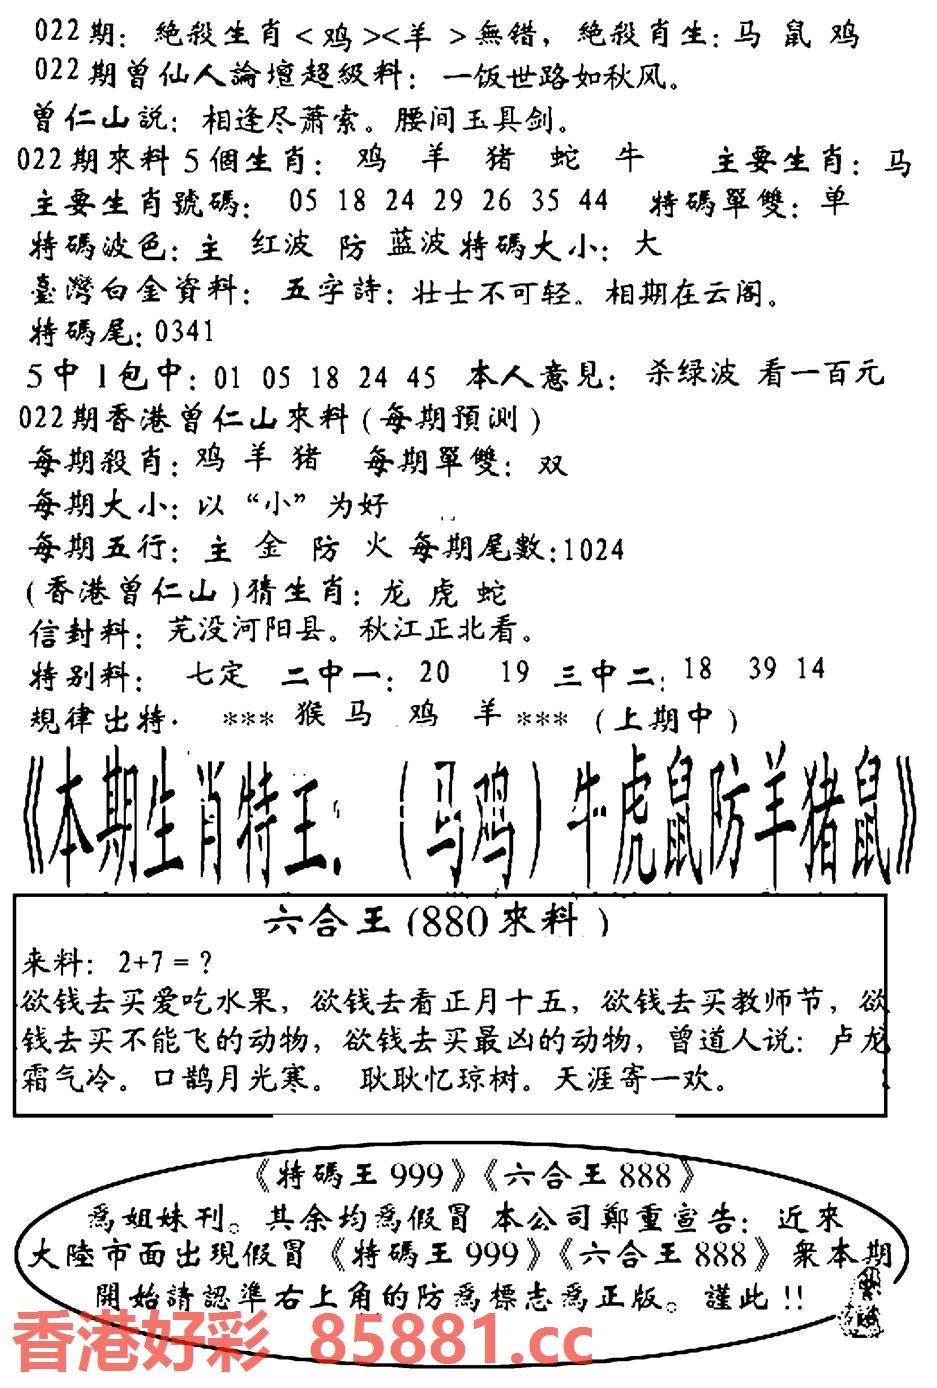 022期: 絶殺生肖<鸡><羊>無错, 絶殺肖生: 马 鼠 鸡
022期曾仙人論壇超級料: 一饭世路如秋风。
曾仁山説: 相逢尽萧索。腰间玉具剑。
022期來料5個生肖: 鸡 羊 猪 蛇 牛 主要生肖: 马
主要生肖號碼: 05 18 24 29 26 35 44 特碼單雙: 单
特碼波色: 主 红波 防 蓝波 特碼大小: 大
臺灣白金資料: 五字詩: 壮士不可轻。相期在云阁。
特碼尾: 0341
5中1包中: 01 05 18 24 45 本人意見: 杀绿波 看一百元
022期香港曾仁山來料(每期預测)
每期殺肖: 鸡 羊 猪 每期單雙: 双
每期大小: 以“小”为好
每期五行: 主 金 防 火 每期尾數: 1024
(香港曾仁山)猜生肖: 龙 虎 蛇
信封料: 芜没河阳县。秋江正北看。
特别料: 七定 二中一: 20 19 三中二: 18 39 14
規律出特. *** 猴 马 鸡 羊 *** (上期中)
《本期生肖特王: (马鸡) 牛虎鼠防羊猪鼠》
六合王(880來料)
来料: 2+7=?
欲钱去买爱吃水果, 欲钱去看正月十五, 欲钱去买教师节, 欲
钱去买不能飞的动物, 欲钱去买最凶的动物, 曾道人说: 卢龙
霜气冷。口鹊月光寒。 耿耿忆琼树。天涯寄一欢。
《特碼王999》《六合王888》
爲姐妹刊。其余均爲假冒 本公司鄭重宣告: 近來
大陸市面出現假冒《特碼王999》《六合王888》衆本期
開始請認準右上角的防爲標志爲正版。謹此!!
香港好彩 85881.cc